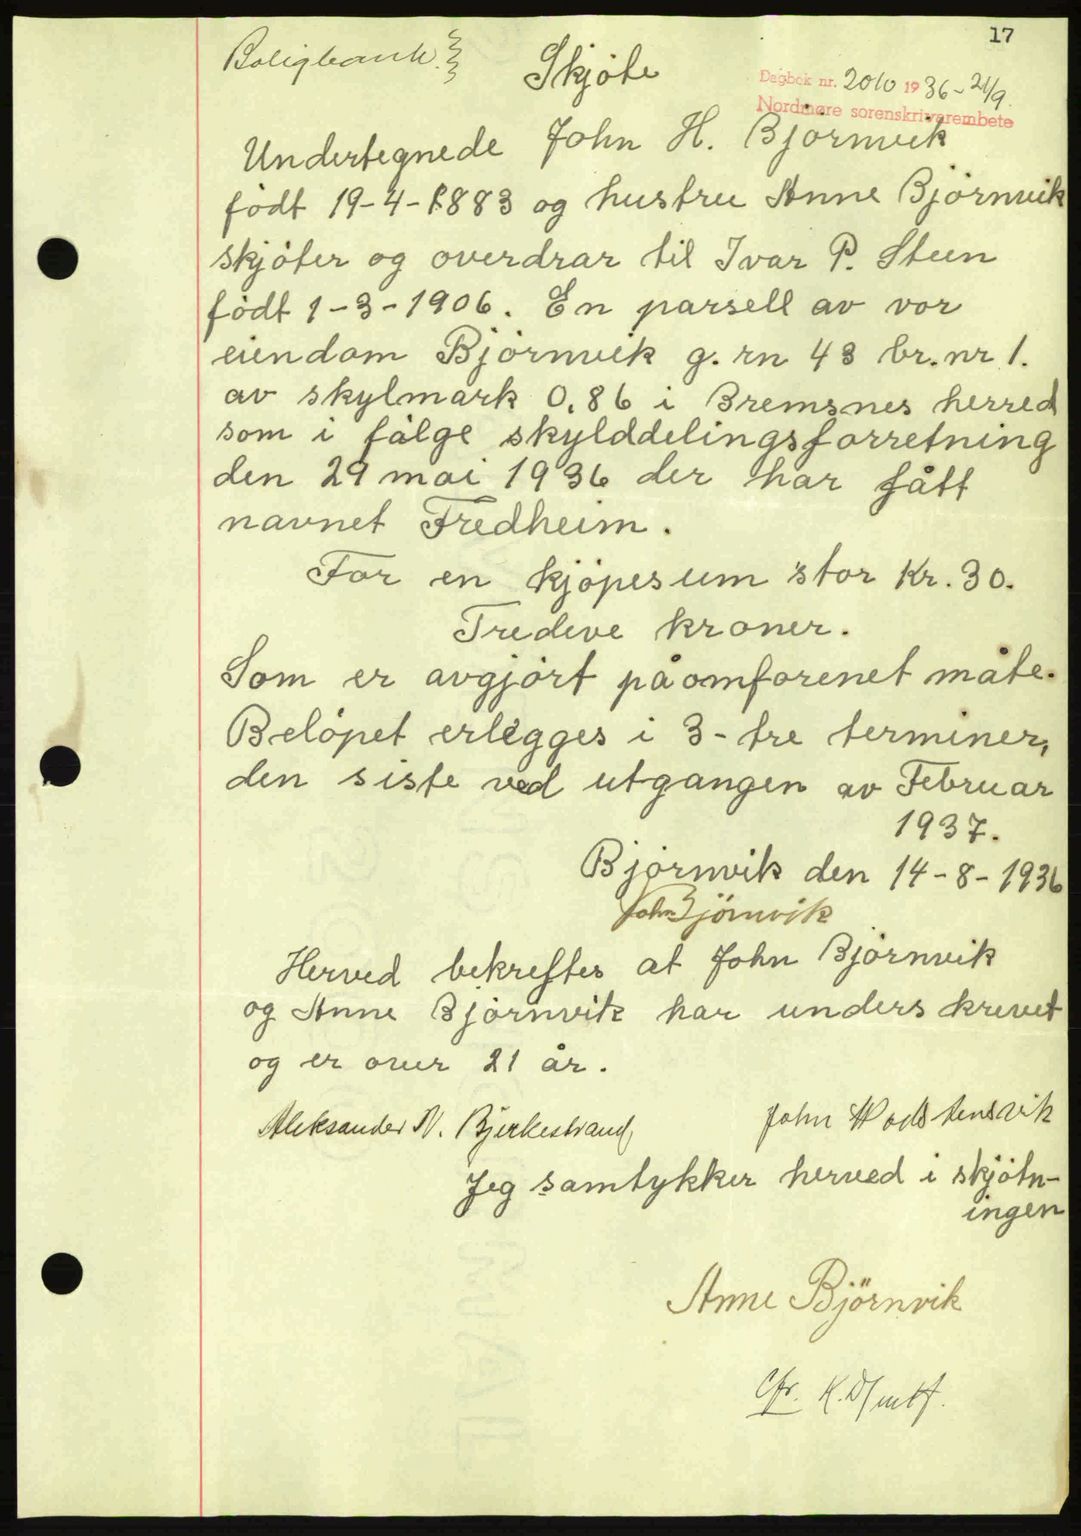 17
Boligbank.
Skjøte
Dagbok nr. 2010 1936 - 21/9.
Nordmøre sorenskriverembete
Undertegnede John H. Bjørnvik
født 19-4-1883 og hustru Anne Bjørnvik
skjøter og overdrar til Ivar P. Steen
født 1-3-1906. En parsell av vor
eiendom Bjørnvik g. rn 43 br. nr 1.
av skylmark 0,86 i Bremsnes herred
som i følge skylddelingsforretning
den 29 mai 1936 der har fått
navnet Fredheim.
For en kjøpesum stor Kr. 30.
Tredeve kroner.
Som er avgjørt på omforenet måte.
Beløpet erlegges i 3 - tre terminer,
den siste ved utgangen av Februar
1937.
Bjørnvik den 14-8-1936
John Bjørnvik
Herved bekreftes at John Bjørnvik
og Anne Bjørnvik har underskrevet
og er over 21 år.
Aleksander N. Bjerkestrand
John
Jeg samtykker herved i skjøtn-
ingen
Anne Björnvik
Cfr.